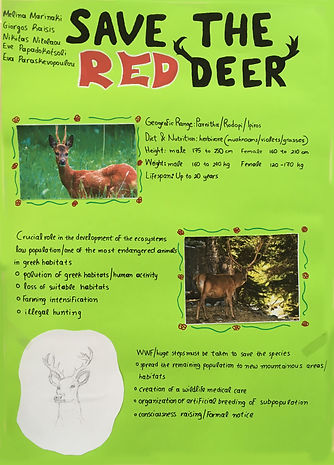 Melina Marinaki
Giorgos Raisis
Nikitas Nikolaou
Eve Papadokotsoli
Eva Paraskevopoulou
SAVE THE
RED DEER
Geografic Range: Parnitha/Rodopi/Ipiros
Diet & Nutrition: herbivore (mushrooms/violets/grasses)
Height: male 175 to 250 cm Female 160 to 210 cm
Weight: male 160 to 240 kg Female 120-170 kg
Lifespan: Up to 20 years
Crucial role in the development of the ecosystems
low population/one of the most endangered animals
in greek habitats
o pollution of greek habitats/human activity
o loss of suitable habitats
o Farming intensification
o illegal hunting
WWF/huge steps must be taken to save the species
o spread the remaining population to new mountainous areas/
habitats
o creation of a wildlife medical care
o organization of artificial breeding of subpopulation
o consciousness raising/Formal notice